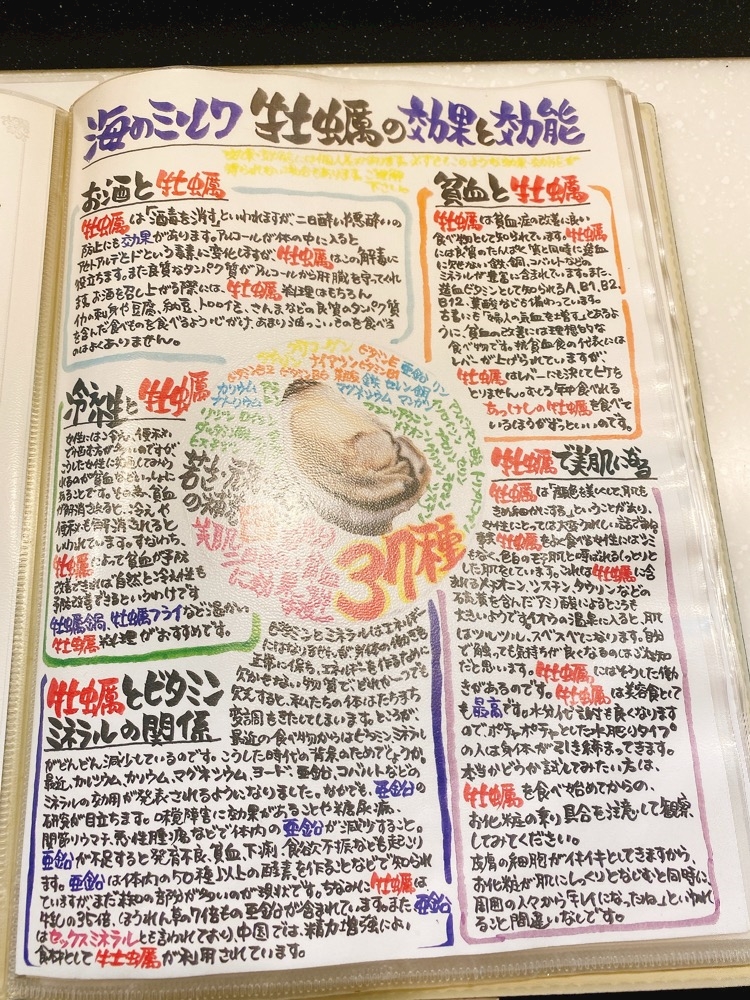 海のミルク 牡蠣の効果と効能
お酒と牡蠣
牡蠣は「酒毒を消す」といわれますが、二日酔いや悪酔いの
防止にも効果があります。アルコールが体の中に入ると
アセトアルデヒドという毒素に変化しますが、牡蠣はこの解毒に
役立ちます。また良質なタンパク質がアルコールから肝臓を守ってくれ
ます。お酒を召し上がる際には、牡蠣料理はもちろん
イカの刺身や豆腐、納豆、トロロイモ、さんまなどの良質のタンパク質
を含んだ食べものを食べるよう心がけ、あまり油っこいものを食べる
のはよくありません。
貧血と牡蠣
牡蠣は貧血症の改善に良い
食べ物として知られています。牡蠣
には良質のたんぱく質と同時に造血
に欠せない鉄、銅、コバルトなどの
ミネラルが豊富に含まれています。また、
造血ビタミンとして知られるA、B1、B2、
B12、葉酸なども備わっています。
古書にも「婦人の気血を増す」とあるよ
うに、貧血の改善には理想的な
食べ物です。抗貧血食の代表には
レバーが上げられていますが、
牡蠣はレバーにも決してヒケを
とりません。むしろ年中食べれる
あっけしの牡蠣を食べて
いるほうがずっといいのです。
冷え性と牡蠣
女性には冷え、便秘
で悩む方が多いのですが、
こうした女性に共通してみら
れるのが貧血などといっしょに
あることです。その為、貧血
が解消されると、冷えや
便秘も解消されると
いわれています。すなわち、
牡蠣によって貧血が予防
改善できれば自然と冷え性も
予防改善できるというわけです
牡蠣鍋、牡蠣フライなど温かい
牡蠣料理がおすすめです。
グリコーゲン ビタミンE 亜鉛 リン
ナイアシン ビタミンB1
ビタミンB12 ビタミンB6 葉酸 鉄 セレン 銅
カリウム マグネシウム マンガン
ナトリウム
37種
牡蠣で美肌になる
牡蠣は「顔色を美しくして、肌を
きめ細かにする」ということがあり、
女性にとっては大変うれしい話ですね
要 牡蠣をよく食べる女性にはシミ
もなく、色白のモチ肌と呼ばれるしっとりと
した肌をしています。これは牡蠣に含
まれるメチオニン、シスチン、タウリンなどの
硫黄を含んだアミノ酸によるところも
大きいようですイオウの温泉に入ると、肌
はツルツル、スベスベになります。自分
で触っても気持ちが良くなるのはご存知
だと思います。牡蠣にはそうした働
きがあるのです。牡蠣は美容食として
も最高です。水分代謝も良くなります
のでポチャポチャとした水肥りタイプ
の人は身体が引き締まってきます。
本当かどうか試してみたい方は、
牡蠣を食べ始めてからの、
お化粧の乗り具合を注意して観察
してみてください。
皮膚の細胞がイキイキとしてきますから、
お化粧が肌にしっくりとなじむと同時に、
周囲の人々から「キレイになったね」といわれ
ること間違いなしです。
牡蠣とビタミン
ミネラルの関係
ビタミンとミネラルはエネルギー
にはなりませんが、身体の働きを
正常に保ち、エネルギーを作るために
欠かせない物質で、どれか一つでも
欠乏すると、私たちの体はたちまち
変調をきたしてしまいます。ところが、
最近の食べ物からはビタミンミネラル
がどんどん減少しているのです。こうした時代の背景のためでしょうか。
最近、カルシウム、カリウム、マグネシウム、ヨード、亜鉛、コバルトなどの
ミネラルの効用が発表されるようになりました。なかでも、亜鉛の
研究が目立ちます。味覚障害に効果があることや糖尿病、
関節リウマチ、悪性腫瘍などで体内の亜鉛が減少すること。
亜鉛が不足すると発育不良、貧血、下痢、食欲不振なども起こり
ます。亜鉛は体内の50種以上の酵素を作ることなどで知られ
ていますがまだ未知の部分が多いのが現状です。ちなみに牡蠣は
牛乳の35倍、ほうれん草の7倍もの亜鉛が含まれています。また亜鉛
はセックスミネラルとも言われており、中国では、精力増強によい
食材として牡蠣が利用されています。